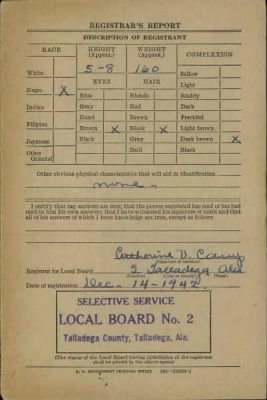 REGISTRAR'S REPORT
DESCRIPTION OF REGISTRANT
RACE HEIGHT (Approx.) WEIGHT (Approx.) COMPLEXION
White 5-8 160 Sallow
EYES HAIR Light
Negro X Blue Blonde Ruddy
Indian Gray Red Dark
Filipino Hazel Brown Freckled
Japanese Brown X Black X Light brown
Other Oriental Black Gray Dark brown X
Bald Black
Other obvious physical characteristics that will aid in identification
none
I certify that my answers are true; that the person registered has read or has had
read to him his own answers; that I have witnessed his signature or mark and that
all of his answers of which I have knowledge are true, except as follows:
Catherine V.
Registrar for Local Board 2 Talladega Ala
Date of registration Dec - 14 - 1942
SELECTIVE SERVICE
LOCAL BOARD No. 2
Talladega County, Talladega, Ala.
(The stamp of the Local Board having jurisdiction of the registrant
shall be placed in the above space)
U. S. GOVERNMENT PRINTING OFFICE